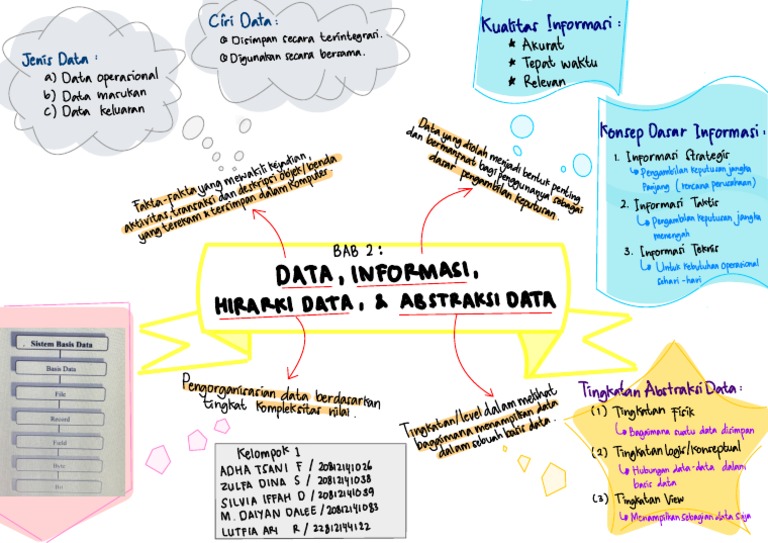 Ciri Data :
Disimpan secara terintegrasi.
Digunakan secara bersama.
Jenis Data :
a) Data operasional
b) Data masukan
c) Data keluaran
Kualitas Informasi :
Akurat
Tepat waktu
Relevan
Konsep Dasar Informasi :
1. Informasi Strategis
Pengambilan keputusan jangka
panjang (rencana perusahaan)
2. Informasi Taktis
Pengambilan keputusan jangka
menengah
3. Informasi Teknis
Untuk kebutuhan operasional
sehari-hari
Fakta-Fakta yang mewakili kejadian,
aktivitas, transaksi dan deskripsi objek/benda
yang terekam & tersimpan dalam komputer
Data yang diolah menjadi bentuk penting
dan bermanfaat bagi penggunanya sebagai
dasar pengambilan keputusan.
BAB 2 :
DATA, INFORMASI,
HIRARKI DATA, & ABSTRAKSI DATA
Sistem Basis Data
Basis Data
File
Record
Field
Byte
Bit
Pengorganisasian data berdasarkan
tingkat kompleksitas nilai.
Tingkatan/level dalam melihat
bagaimana menampilkan data
dalam sebuah basis data.
Kelompok 1
ADHA TSANI F / 20812141026
ZULFA DINA S / 20812141038
SILVIA IFFAH D / 20812141059
M. DAIYAN DALEE / 20812141083
LUTFIA ARI R / 22812144122
Tingkatan Abstraksi Data :
(1) Tingkatan Fisik
Bagaimana suatu data disimpan
(2) Tingkatan logis/konseptual
Hubungan data-data dalam
basis data
(3) Tingkatan View
Menampilkan sebagian data saja